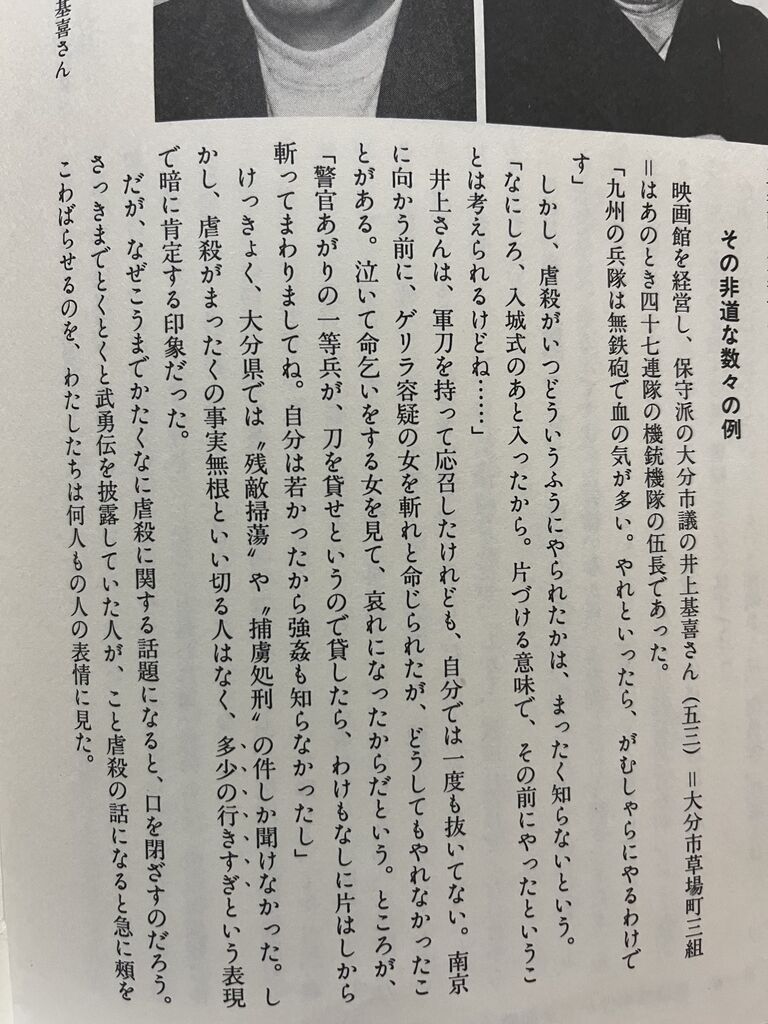 その非道な数々の例
映画館を経営し、保守派の大分市議の井上基喜さん（五三）＝大分市草場町三組
＝はあのとき四十七連隊の機銃機隊の伍長であった。
「九州の兵隊は無鉄砲で血の気が多い。やれといったら、がむしゃらにやるわけで
す」
しかし、虐殺がいつどういうふうにやられたかは、まったく知らないという。
「なにしろ、入城式のあと入ったから。片づける意味で、その前にやったというこ
とは考えられるけどね……」
井上さんは、軍刀を持って応召したけれども、自分では一度も抜いてない。南京
に向かう前に、ゲリラ容疑の女を斬れと命じられたが、どうしてもやれなかったこ
とがある。泣いて命乞いをする女を見て、哀れになったからだという。ところが、
「警官あがりの一等兵が、刀を貸せというので貸したら、わけもなしに片はしから
斬ってまわりましてね。自分は若かったから強姦も知らなかったし」
けっきょく、大分県では〝残敵掃蕩〟や〝捕虜処刑〟の件しか聞けなかった。し
かし、虐殺がまったくの事実無根といい切る人はなく、多少の行きすぎという表現
で暗に肯定する印象だった。
だが、なぜこうまでかたくなに虐殺に関する話題になると、口を閉ざすのだろう。
さっきまでとくとくと武勇伝を披露していた人が、こと虐殺の話になると急に頬を
こわばらせるのを、わたしたちは何人もの人の表情に見た。
基喜さん